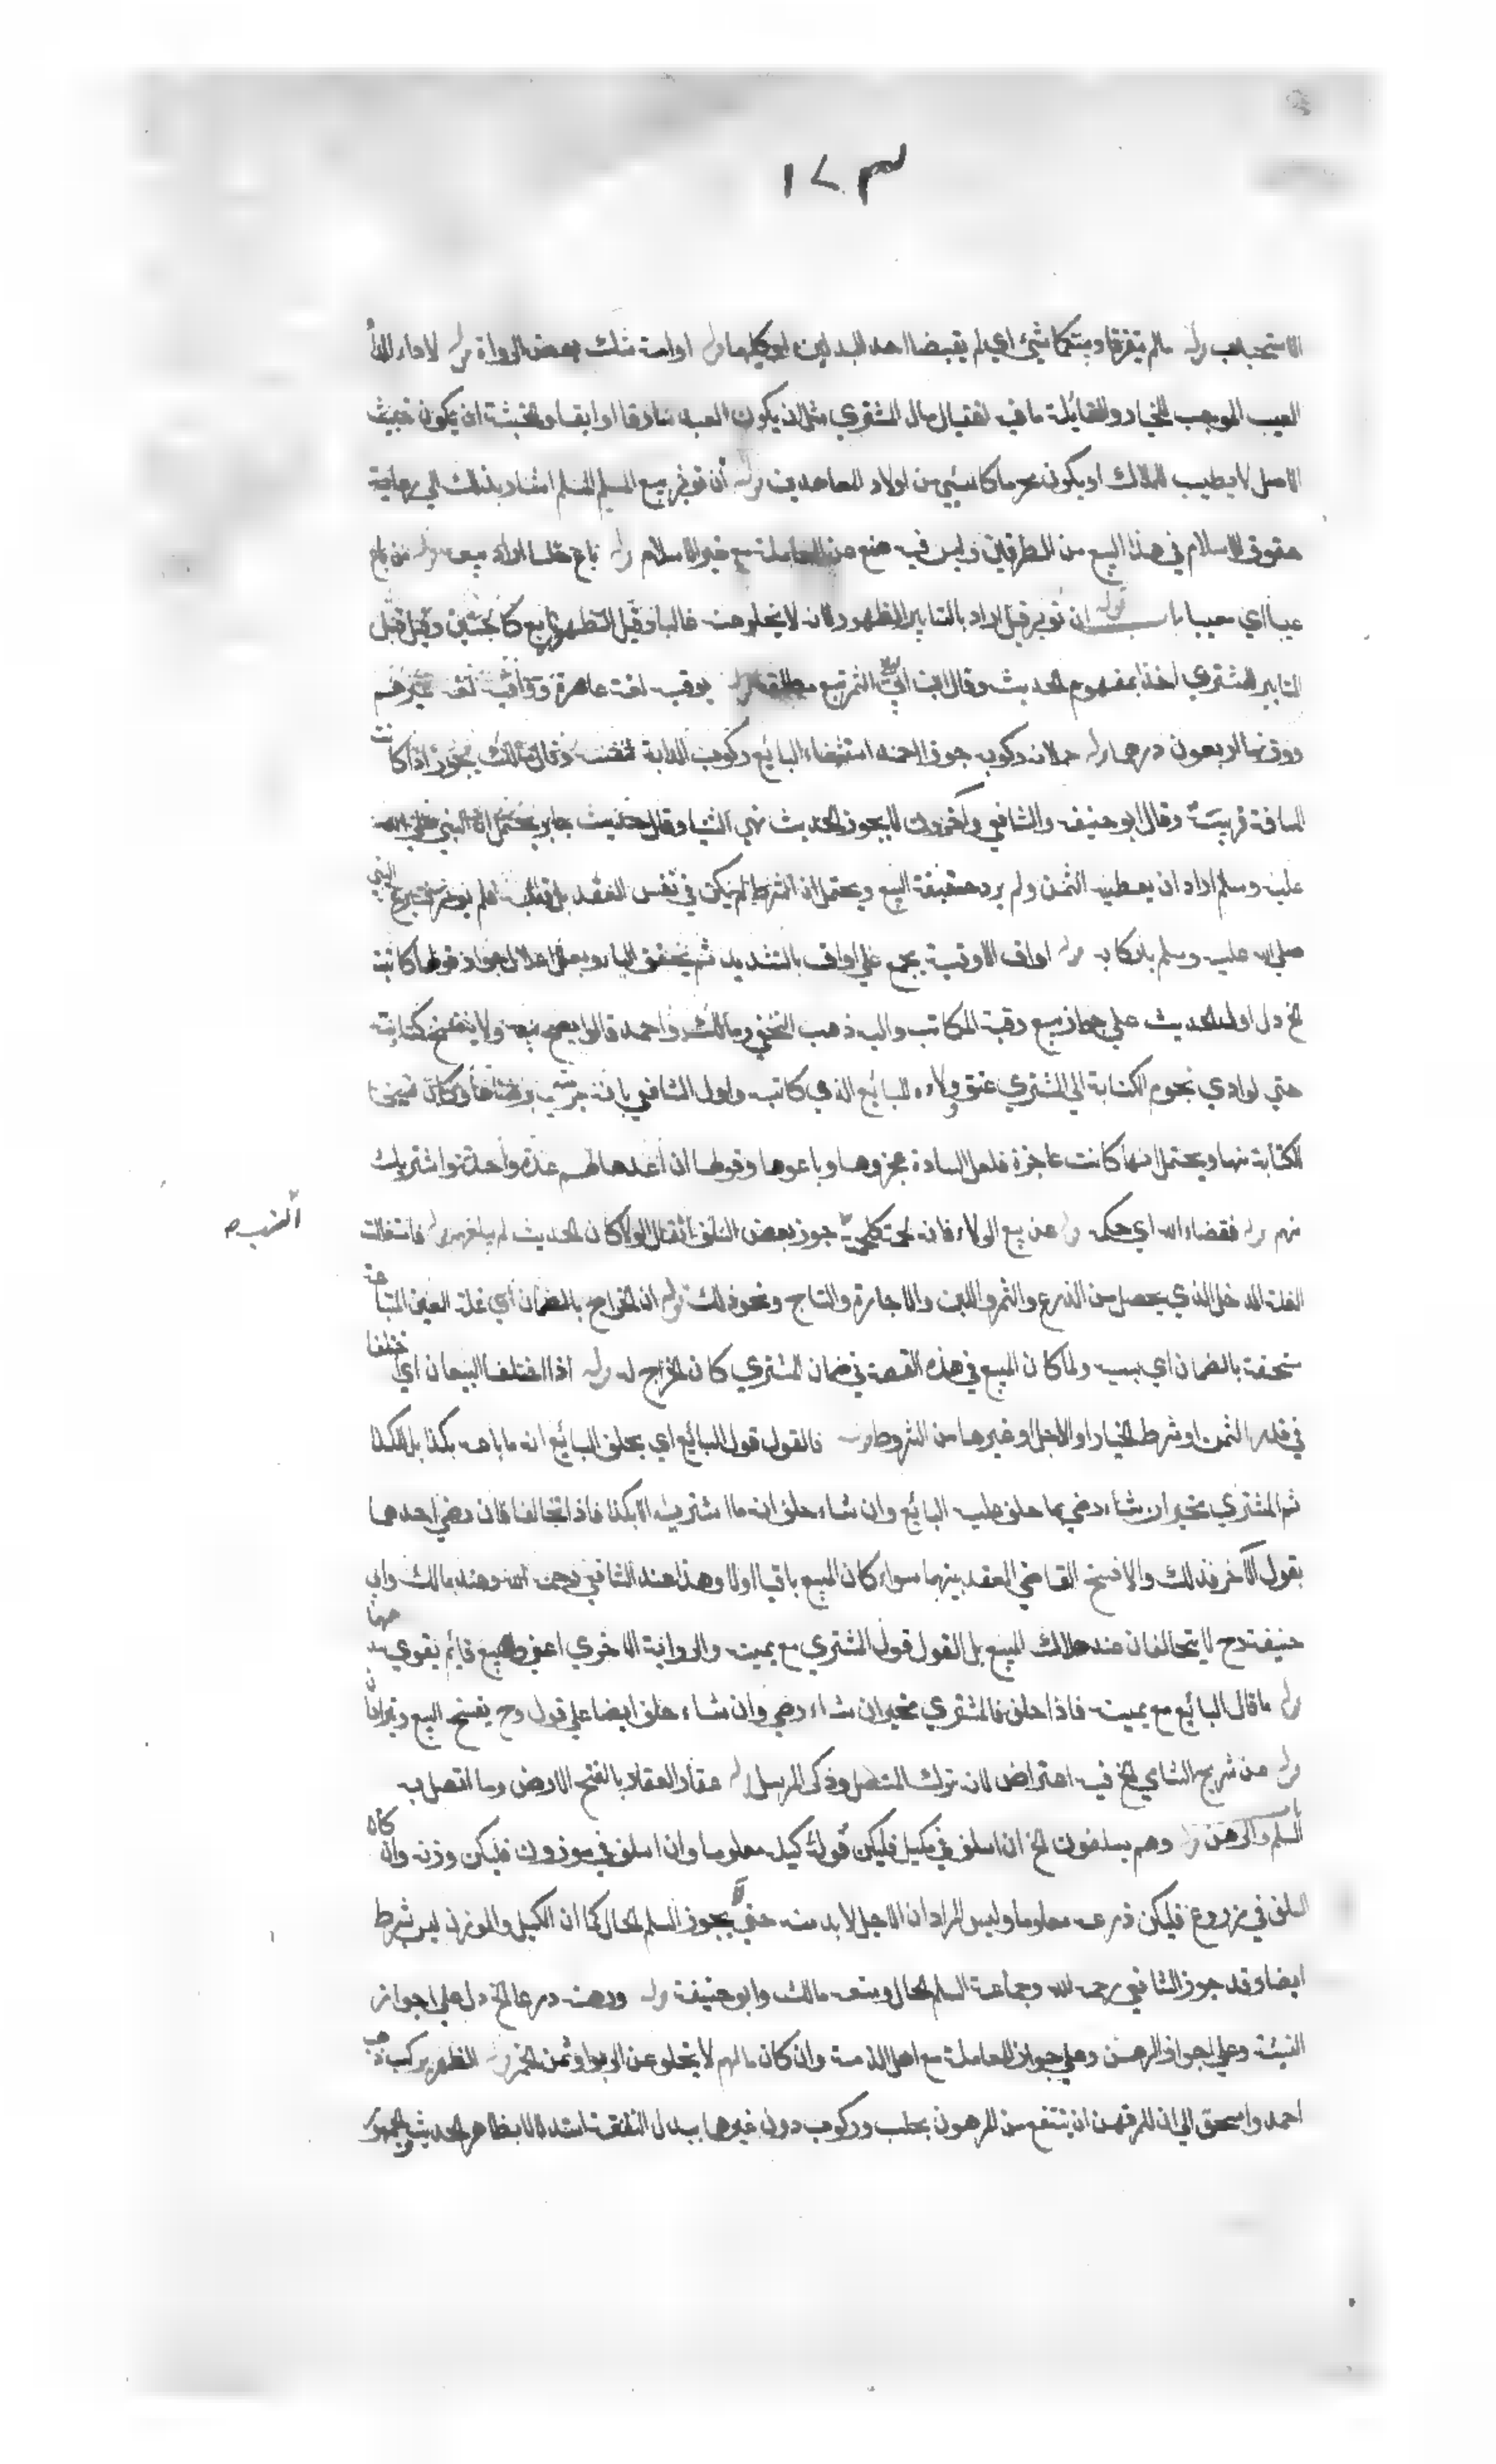 ١٧٣
الاستحباب قوله مالم يتفرقا وبيتكما شيئ اي لم يقبضا احد البدلين او كليهما قوله او امة شك بعض الرواة قوله لاداء الداء
العيب الموجب للخيار والغائلة ما فيه اغتيال مال المشتري مثل ان يكون العبد سارقا او ابقا والخبثة ان يكون خبيث
الاصل لا يطيب للملاك او يكون محرما كالسبي من اولاد المعاهدين قوله بيع المسلم المسلم اشار بذلك الي رعاية
حقوق الاسلام في هذا البيع من الطرفين وليس فيه منع من المعاملة مع غير الاسلام قوله باع حلسا اراد بيعه قوله من باع
عيبا اي معيبا باب قوله ان توبر قيل اراد بالتابير الظهور لانه لا يخلو عنه غالبا وقيل
التابير للمشتري اخذا بمفهوم الحديث وقال ابن ابي الثمر تبيع مطلقا قوله بوقية لغة عامرة لغة غيرهم
ووزنها اربعون درهما قوله حملانه ركوبه جوز احمد استثناء البائع ركوب الدابة لنفسه وقال مالك يجوز اذا كانت
المسافة قريبة وقال ابو حنيفة والشافعي وآخرون لا يجوز لحديث نهي الثنيا وقالوا حديث جابر يحتمل ان النبي صلي الله
عليه وسلم اراد ان يعطيه الثمن ولم يرد حقيقة البيع ويحتمل ان الشرط لم يكن في نفس العقد النبي
صلي الله عليه وسلم باركابه قوله اواق الاوقية يجمع علي اواقي بالتشديد ثم يخفف الياء كاتبت
الخ دل اول الحديث علي جواز بيع رقبة المكاتب واليه ذهب النخعي ومالك واحمد قالوا يصح بيعه ولا ينفسخ كتابته
حتي لو ادي نجوم الكتابة الي المشتري عتق وولاءه للبائع الذي كاتبه واول الشافعي بانه جري برضاها وكان فسخا
للكتابة منها ويحتمل انها كانت عاجزة فلعل السادة عجزوها وباعوها وقولها ان اعدها لهم عدة واحدة واشتريك
منهم قوله فقضاء الله اي حكمه قوله عن بيع الولاء فانه لحمة كلحمة النسب جوز بعض السلف انتقال الولاء كان الحديث لم يبلغهم قوله فاستغللت
الغلة الدخل الذي يحصل من الزرع والثمر واللبن والاجارة والنتاج ونحو ذلك قوله ان الخراج بالضمان اي غلة العين المبتاعة
مستحقة بالضمان اي بسببه ولما كان المبيع في هذه القصة في ضمان المشتري كان الخراج له قوله اذا اختلف البيعان اي اختلفا
في قدر الثمن او شرط الخيار او الاجل او غيرها من الشروط قوله فالقول قول البائع اي يحلف البائع انه ما باعه بكذا بل بكذا
ثم المشتري مخير ان شاء رضي بما حلف عليه البائع وان شاء حلف انه ما اشتريه الا بكذا فاذا تحالفا فان رضي احدهما
بقول الآخر فذلك والا فسخ القاضي العقد بينهما سواء كان المبيع باقيا اولا وهذا عند الشافعي رحمه الله وعند مالك وابي
حنيفة رح لا يتحالفان عند هلاك المبيع بل القول قول المشتري مع يمينه والرواية الاخري اعني والمبيع قائم يقوي مذهبهما
قوله ما قال البائع مع يمينه فاذا حلف فالمشتري مخير ان شاء رضي وان شاء حلف ايضا علي قول رح يفسخ البيع ويترادان
قوله عن شريح الشامي الخ فيه اعتراض لانه ترك المتصل وذكر المرسل قوله عقار العقار بالفتح الارض وما اتصل به
باب السلم والرهن قوله وهم يسلفون الخ ان اسلف في مكيل فليكن قوله كيله معلوما وان اسلف في موزون فليكن وزنه وان كان
السلف في مزروع فليكن ذرعه معلوما وليس المراد ان الاجل لابد منه حتي لا يجوز السلم الحال كما ان الكيل والوزن ليس شرط
ايضا وقد جوز الشافعي رحمه الله وجماعة السلم الحال ومنعه مالك وابو حنيفة قوله ورهنه درعا الخ دل علي جواز
النسيئة وعلي جواز الرهن وعلي جواز المعاملة مع اهل الذمة وان كان مالهم لا يخلو عن الربوا وثمن الخمر قوله الظهر يركب ذهب
احمد واسحق الي ان للمرتهن ان ينتفع من المرهون بحلب وركوب دون غيرها بدل النفقة استدلالا بظاهر الحديث والجمهور